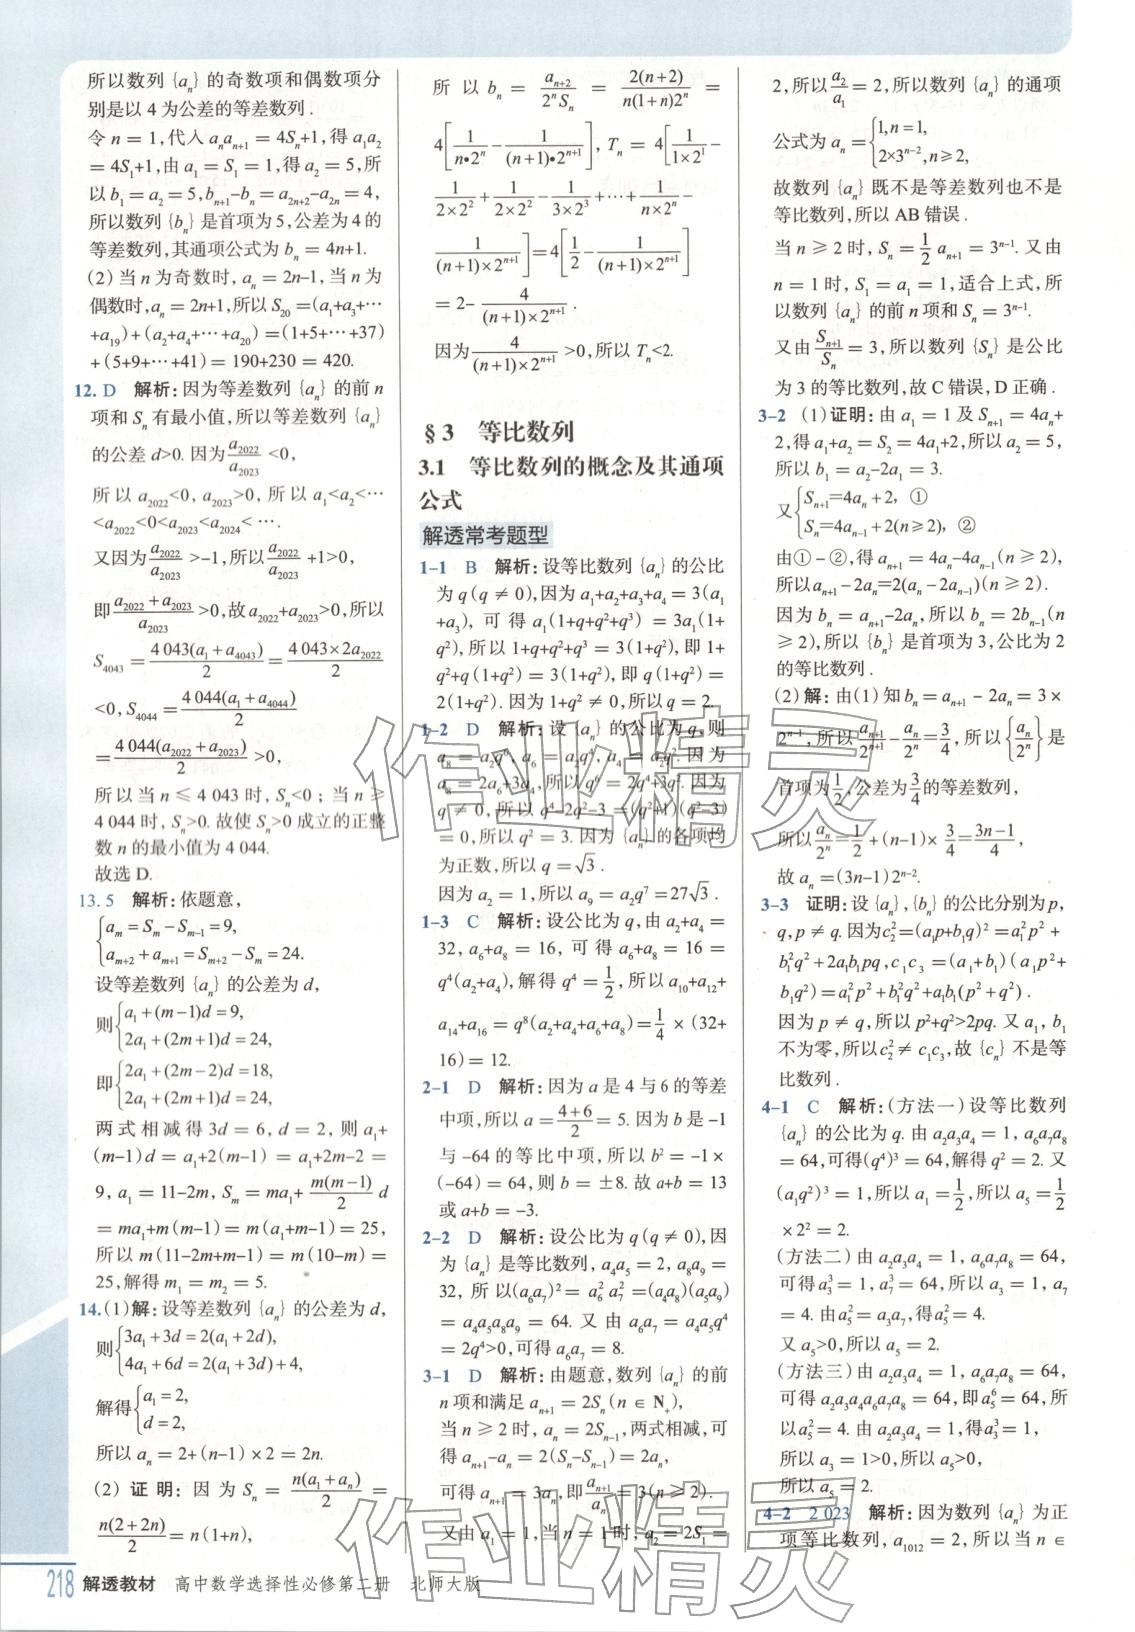 所以数列{aₙ}的奇数项和偶数项分
别是以4为公差的等差数列.
令n=1,代入aₙaₙ₊₁=4Sₙ+1,得a₁a₂
=4S₁+1,由a₁=S₁=1,得a₂=5,所
以b₁=a₂=5,bₙ₊₁-bₙ=a₂ₙ₊₂-a₂ₙ=4,
所以数列{bₙ}是首项为5,公差为4的
等差数列,其通项公式为bₙ=4n+1.
(2)当n为奇数时,aₙ=2n-1,当n为
偶数时,aₙ=2n+1,所以S₂₀=(a₁+a₃+⋯
+a₁₉)+(a₂+a₄+⋯+a₂₀)=(1+5+⋯+37)
+(5+9+⋯+41)=190+230=420.
12. D 解析:因为等差数列{aₙ}的前n
项和Sₙ有最小值,所以等差数列{aₙ}
的公差d>0.因为a₂₀₂₂/a₂₀₂₃<0,
所以a₂₀₂₂<0,a₂₀₂₃>0,所以a₁<a₂<⋯
<a₂₀₂₂<0<a₂₀₂₃<a₂₀₂₄<⋯.
又因为a₂₀₂₂/a₂₀₂₃>-1,所以a₂₀₂₂/a₂₀₂₃+1>0,
即(a₂₀₂₂+a₂₀₂₃)/a₂₀₂₃>0,故a₂₀₂₂+a₂₀₂₃>0,所以
S₄₀₄₃=4 043(a₁+a₄₀₄₃)/2=4 043×2a₂₀₂₂/2
<0,S₄₀₄₄=4 044(a₁+a₄₀₄₄)/2
=4 044(a₂₀₂₂+a₂₀₂₃)/2>0,
所以当n≤4 043时,Sₙ<0;当n≥
4 044时,Sₙ>0.故使Sₙ>0成立的正整
数n的最小值为4 044.
故选D.
13. 5 解析:依题意,
{aₘ=Sₘ-Sₘ₋₁=9,
aₘ₊₂+aₘ₊₁=Sₘ₊₂-Sₘ=24.
设等差数列{aₙ}的公差为d,
则{a₁+(m-1)d=9,
2a₁+(2m+1)d=24,
即{2a₁+(2m-2)d=18,
2a₁+(2m+1)d=24,
两式相减得3d=6,d=2,则a₁+
(m-1)d=a₁+2(m-1)=a₁+2m-2=
9,a₁=11-2m,Sₘ=ma₁+m(m-1)/2 d
=ma₁+m(m-1)=m(a₁+m-1)=25,
所以m(11-2m+m-1)=m(10-m)=
25,解得m₁=m₂=5.
14.(1)解:设等差数列{aₙ}的公差为d,
则{3a₁+3d=2(a₁+2d),
4a₁+6d=2(a₁+3d)+4,
解得{a₁=2,
d=2,
所以aₙ=2+(n-1)×2=2n.
(2)证明:因为Sₙ=n(a₁+aₙ)/2=
n(2+2n)/2=n(1+n),
所以bₙ=aₙ₊₂/(2ⁿSₙ)=2(n+2)/(n(1+n)2ⁿ)=
4[1/(n•2ⁿ)-1/((n+1)•2ⁿ⁺¹)],Tₙ=4[1/(1×2¹)-
1/(2×2²)+1/(2×2²)-1/(3×2³)+⋯+1/(n×2ⁿ)-
1/((n+1)×2ⁿ⁺¹)]=4[1/2-1/((n+1)×2ⁿ⁺¹)]
=2-4/((n+1)×2ⁿ⁺¹).
因为4/((n+1)×2ⁿ⁺¹)>0,所以Tₙ<2.
§3 等比数列
3.1 等比数列的概念及其通项
公式
解透常考题型
1-1 B 解析:设等比数列{aₙ}的公比
为q(q≠0),因为a₁+a₂+a₃+a₄=3(a₁
+a₃),可得a₁(1+q+q²+q³)=3a₁(1+
q²),所以1+q+q²+q³=3(1+q²),即1+
q²+q(1+q²)=3(1+q²),即q(1+q²)=
2(1+q²).因为1+q²≠0,所以q=2.
1-2 D 解析:设{aₙ}的公比为q,则
a₈=a₂q⁶,a₆=a₂q⁴,a₄=a₂q².因为
a₈=2a₆+3a₄,所以q⁶=2q⁴+3q².因为
q≠0,所以q⁴-2q²-3=(q²+1)(q²-3)
=0,所以q²=3.因为{aₙ}的各项均
为正数,所以q=√3.
因为a₂=1,所以a₉=a₂q⁷=27√3.
1-3 C 解析:设公比为q,由a₂+a₄=
32,a₆+a₈=16,可得a₆+a₈=16=
q⁴(a₂+a₄),解得q⁴=1/2,所以a₁₀+a₁₂+
a₁₄+a₁₆=q⁸(a₂+a₄+a₆+a₈)=1/4×(32+
16)=12.
2-1 D 解析:因为a是4与6的等差
中项,所以a=(4+6)/2=5.因为b是-1
与-64的等比中项,所以b²=-1×
(-64)=64,则b=±8.故a+b=13
或a+b=-3.
2-2 D 解析:设公比为q(q≠0),因
为{aₙ}是等比数列,a₄a₅=2,a₈a₉=
32,所以(a₆a₇)²=a₆²a₇²=(a₄a₈)(a₅a₉)
=a₄a₅a₈a₉=64.又由a₆a₇=a₄a₅q⁴
=2q⁴>0,可得a₆a₇=8.
3-1 D 解析:由题意,数列{aₙ}的前
n项和满足aₙ₊₁=2Sₙ(n∈N₊),
当n≥2时,aₙ=2Sₙ₋₁,两式相减,可
得aₙ₊₁-aₙ=2(Sₙ-Sₙ₋₁)=2aₙ,
可得aₙ₊₁=3aₙ,即aₙ₊₁/aₙ=3(n≥2).
又由a₁=1,当n=1时,a₂=2S₁=
2,所以a₂/a₁=2,所以数列{aₙ}的通项
公式为aₙ={1,n=1,
2×3ⁿ⁻²,n≥2,
故数列{aₙ}既不是等差数列也不是
等比数列,所以AB错误.
当n≥2时,Sₙ=1/2 aₙ₊₁=3ⁿ⁻¹.又由
n=1时,S₁=a₁=1,适合上式,所
以数列{aₙ}的前n项和Sₙ=3ⁿ⁻¹.
又由Sₙ₊₁/Sₙ=3,所以数列{Sₙ}是公比
为3的等比数列,故C错误,D正确.
3-2 (1)证明:由a₁=1及Sₙ₊₁=4aₙ+
2,得a₁+a₂=S₂=4a₁+2,所以a₂=5,
所以b₁=a₂-2a₁=3.
又{Sₙ₊₁=4aₙ+2, ①
Sₙ=4aₙ₋₁+2(n≥2), ②
由①-②,得aₙ₊₁=4aₙ-4aₙ₋₁(n≥2),
所以aₙ₊₁-2aₙ=2(aₙ-2aₙ₋₁)(n≥2).
因为bₙ=aₙ₊₁-2aₙ,所以bₙ=2bₙ₋₁(n
≥2),所以{bₙ}是首项为3,公比为2
的等比数列.
(2)解:由(1)知bₙ=aₙ₊₁-2aₙ=3×
2ⁿ⁻¹,所以aₙ₊₁/2ⁿ⁺¹-aₙ/2ⁿ=3/4,所以{aₙ/2ⁿ}是
首项为1/2,公差为3/4的等差数列,
所以aₙ/2ⁿ=1/2+(n-1)×3/4=(3n-1)/4,
故aₙ=(3n-1)2ⁿ⁻².
3-3 证明:设{aₙ},{bₙ}的公比分别为p,
q,p≠q.因为c₂²=(a₁p+b₁q)²=a₁²p²+
b₁²q²+2a₁b₁pq,c₁c₃=(a₁+b₁)(a₁p²+
b₁q²)=a₁²p²+b₁²q²+a₁b₁(p²+q²).
因为p≠q,所以p²+q²>2pq.又a₁,b₁
不为零,所以c₂²≠c₁c₃,故{cₙ}不是等
比数列.
4-1 C 解析:(方法一)设等比数列
{aₙ}的公比为q.由a₂a₃a₄=1,a₆a₇a₈
=64,可得(q⁴)³=64,解得q²=2.又
(a₁q²)³=1,所以a₁=1/2,所以a₅=1/2
×2²=2.
(方法二)由a₂a₃a₄=1,a₆a₇a₈=64,
可得a₃³=1,a₇³=64,所以a₃=1,a₇
=4.由a₅²=a₃a₇,得a₅²=4.
又a₅>0,所以a₅=2.
(方法三)由a₂a₃a₄=1,a₆a₇a₈=64,
可得a₂a₃a₄a₆a₇a₈=64,即a₅⁶=64,所
以a₅²=4.由a₂a₃a₄=1,得a₃³=1,
所以a₃=1>0,所以a₅>0,
所以a₅=2.
4-2 2 023 解析:因为数列{aₙ}为正
项等比数列,a₁₀₁₂=2,所以当n∈
作业精灵
作业精灵
218 解透教材 高中数学选择性必修第二册 北师大版